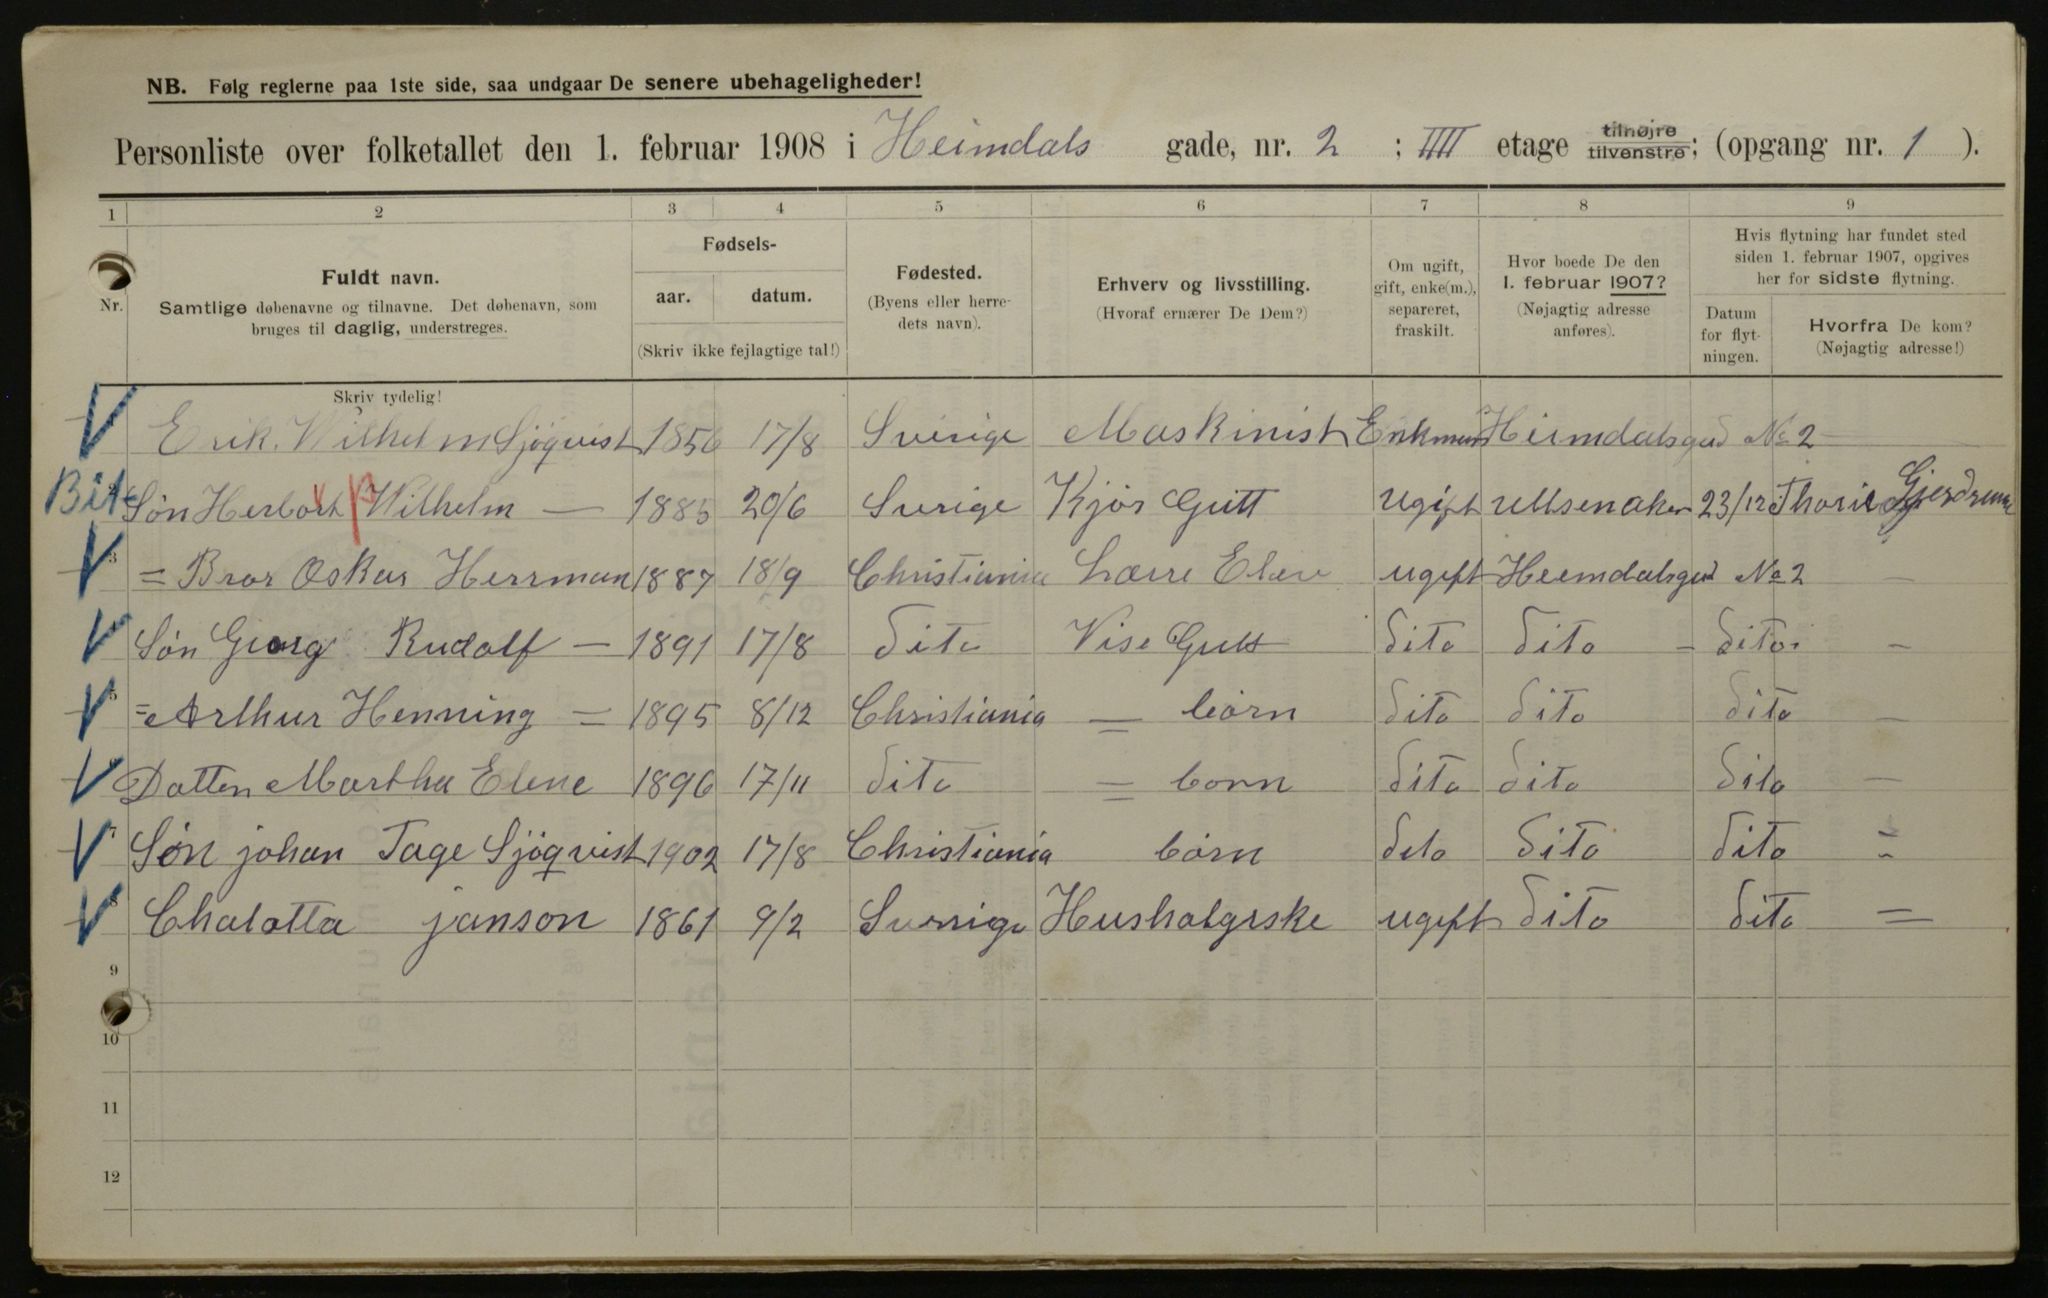 NB. Følg reglerne paa 1ste side, saa undgaar De senere ubehageligheder!
Personliste over folketallet den 1. februar 1908 i Heimdals gade, nr. 2 ; IIII etage tilhøjre tilvenstre; (opgang nr. 1 ).
1 2 3 4 5 6 7 8 9
Nr.
Fuldt navn.
Samtlige døbenavne og tilnavne. Det døbenavn, som
bruges til daglig, understreges.
Fødsels-
aar. datum.
(Skriv ikke fejlagtige tal!)
Fødested.
(Byens eller herre-
dets navn).
Erhverv og livsstilling.
(Hvoraf ernærer De Dem?)
Om ugift,
gift, enke(m.),
separeret,
fraskilt.
Hvor boede De den
1. februar 1907?
(Nøjagtig adresse
anføres).
Hvis flytning har fundet sted
siden 1. februar 1907, opgives
her for sidste flytning.
Datum
for flyt-
ningen.
Hvorfra De kom?
(Nøjagtig adresse!)
Skriv tydelig!
Erik. Wilhelm Sjøqvist 1856 17/8 Sverige Maskinist Enkman Heimdalsgad No 2 —
Søn Herbort Wilhelm — 1885 20/6 Sverige Kjør Gutt ugift 23/12 Gjerdrum
3 = Bror Oskar Herrman 1887 18/9 Christiania Lærre Elev ugift Heemdalsgad No 2 —
Søn Georg Rudolf — 1891 17/8 dito Vise Gutt dito dito — dito —
5 = Arthur Henning = 1895 8/12 Christiania = børn dito dito dito —
Datten Martha Elene 1896 17/11 dito = born dito dito dito —
7 Søn johan Tage Sjöqvist 1902 17/8 Christiania børn dito dito dito =
8 Chalotta janson 1861 9/2 Sverige Husholgrske ugift dito dito =
9
10
11
12